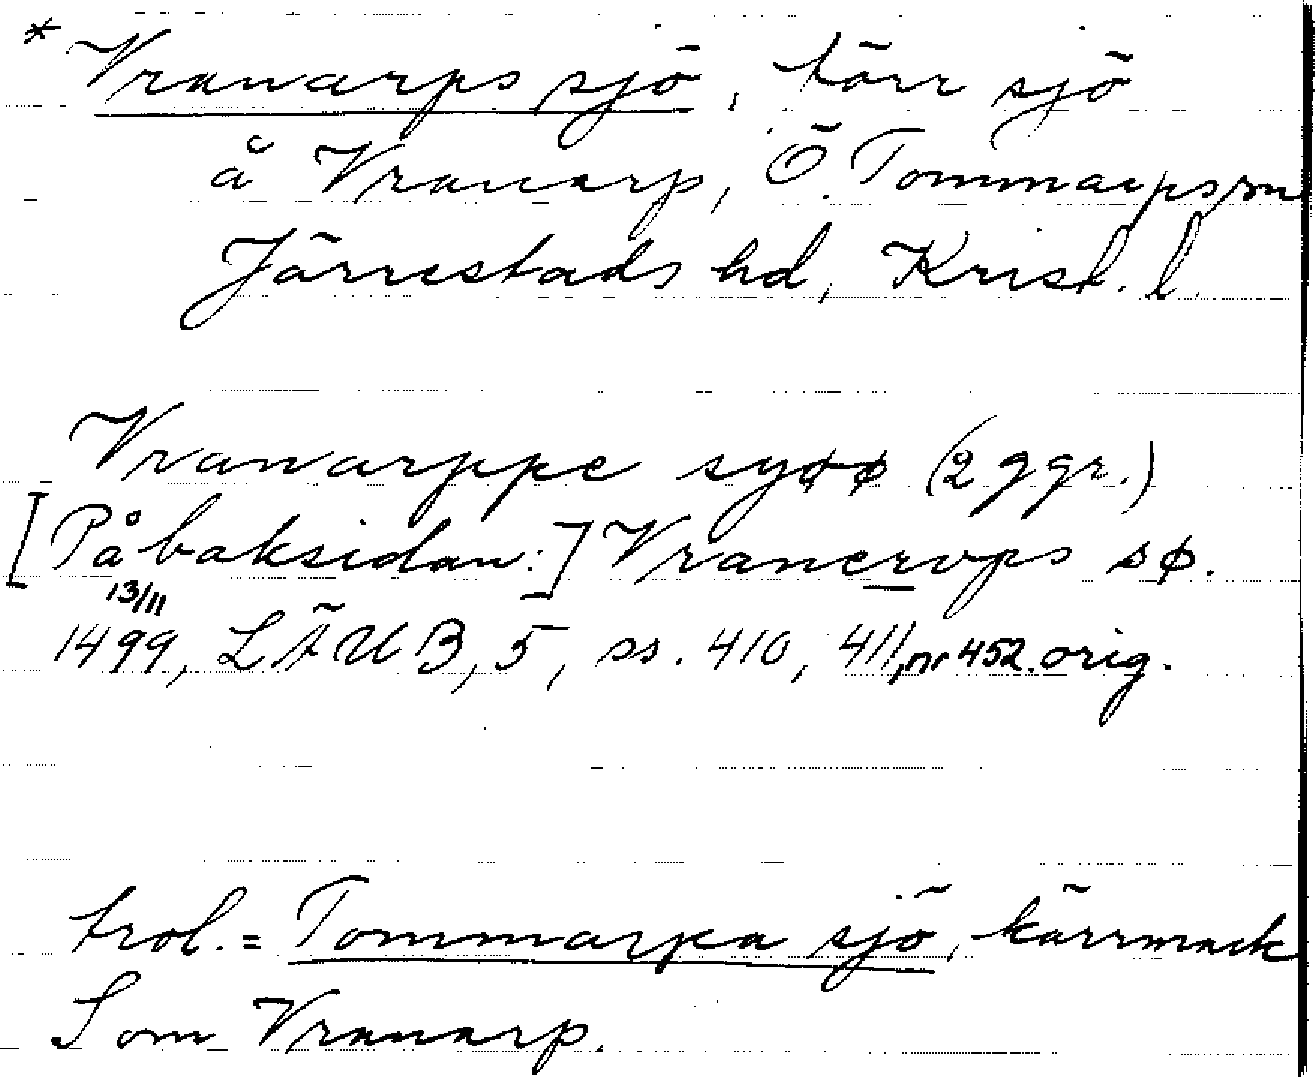 * Vranarps sjö, törr sjö
å Vranarp, Ö. Tommarps sn
Järrestads hd, Krist. l.
Vranarppe syøø (2 ggr.)
[På baksidan:] Vranerops sø.
13/11
1499, LÄUB, 5, ss. 410, 411, nr 452. orig.
trol. = Tommarpa sjö, kärrmark
S om Vranarp.